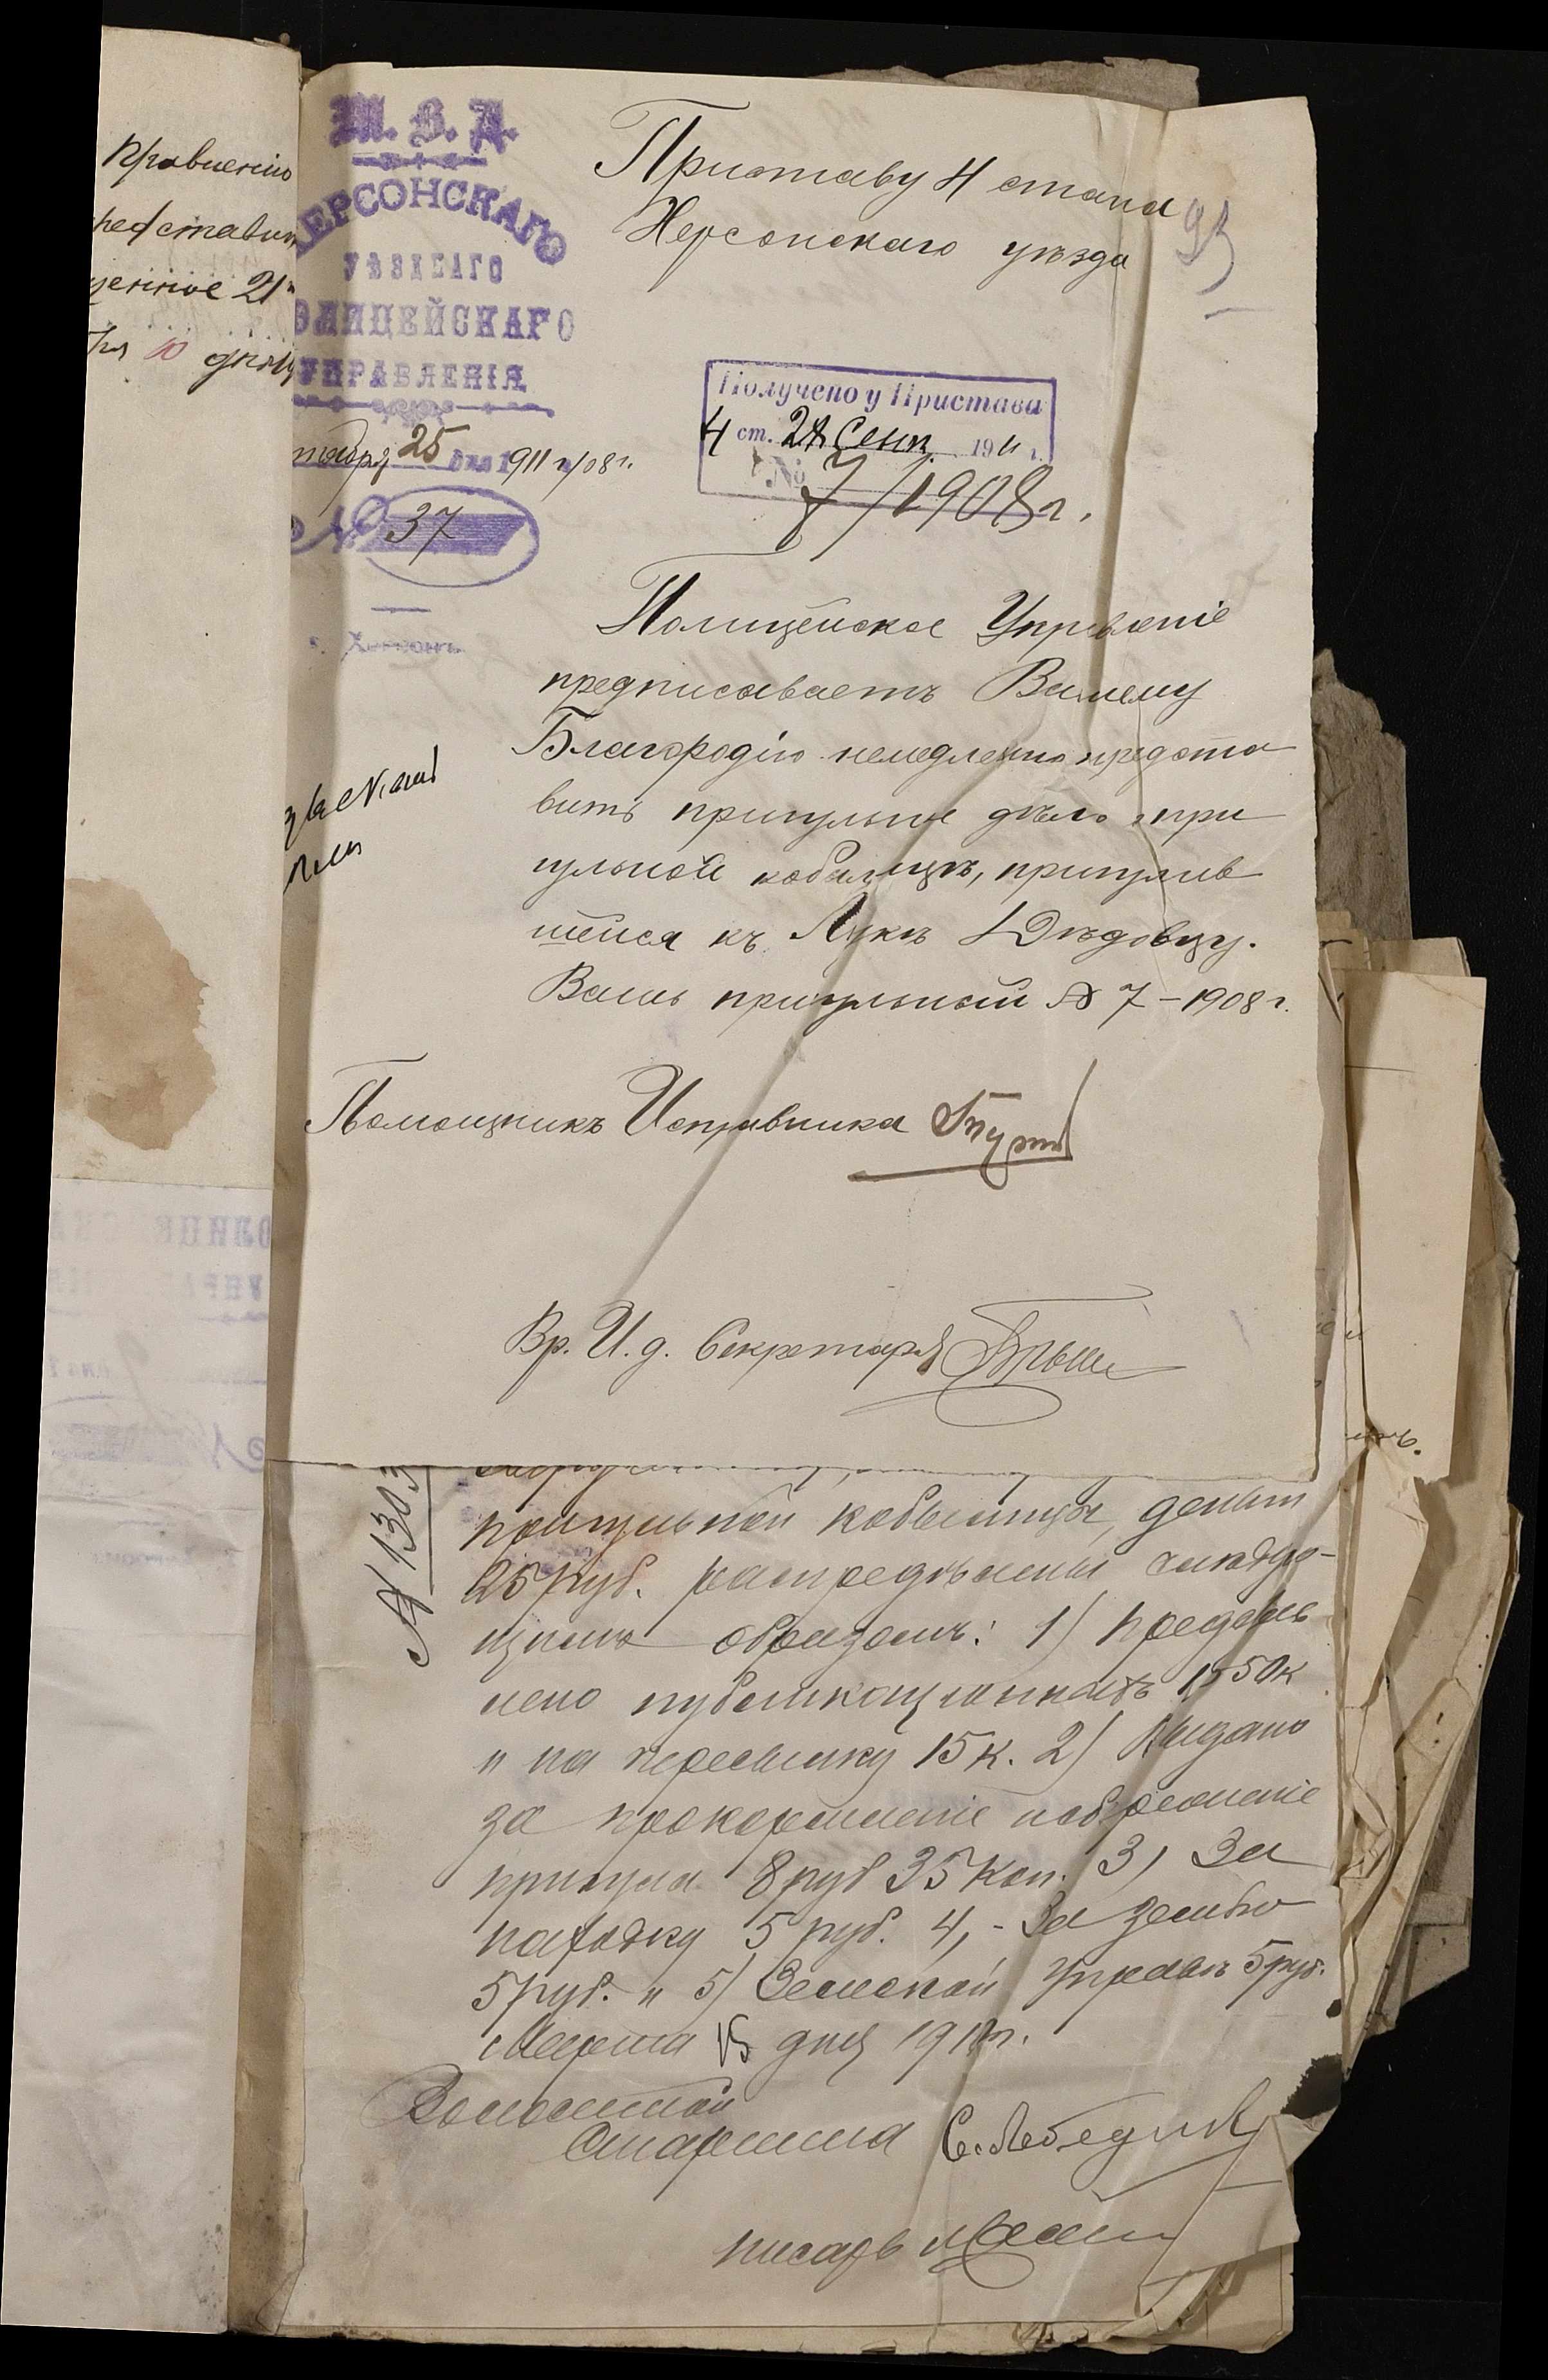 Правленію
12
М. В. Д.
ХЕРСОНСКАГО
УѢЗДНАГО
ПОЛИЦЕЙСКАГО
УПРАВЛЕНІЯ
25 дня 1911 г/08 г.
№ 37
г. Херсонъ
Приставу 4 стана
Херсонскаго уѣзда
93
Получено у Пристава
4 ст. 28 Сент. 1911 г.
№ 7/1908 г.
Полицейское Управленіе
предписываетъ Вашему
Благородію немедленно предста
вить пригульное дѣло о при
гульной кобылицѣ, пригулив
шейся къ Лукѣ Дѣдовцу.
Вашъ пригульный № 7 – 1908 г.
Помощникъ Исправника
Вр. И. д. Секретаря
№ 1303
пригульной кобылицы, деньги
25 руб. распредѣлены слѣдую-
щимъ образомъ: 1) предъяв
лено публикаціонныхъ 1 р 50 к
и на пересылку 15 к. 2) Выдано
за прокормленіе
пригула 8 руб 35 коп. 3) За
находку 5 руб. 4) - За землю
5 руб. и 5) Земской Управѣ 5 руб.
Марта 15 дня 191 г.
Волостной
Старшина С. Лебедик
писарь